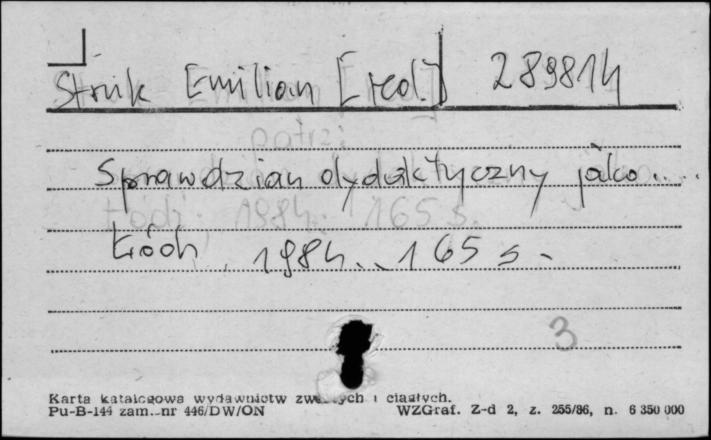 Struk Emilian [red.] 289814
patrz:
Sprawdzian dydaktyczny jako....
Łódź, 1984. 165 s.
Łódź, 1984. 165 s.
3
Karta katalogowa wydawnictw zwartych i ciągłych.
Pu-B-144 zam. nr 446/DW/ON WZGraf. Z-d 2, z. 255/86, n. 6 350 000